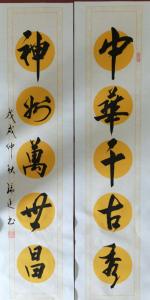 中華千古秀
神州萬世昌
戊戌仲秋